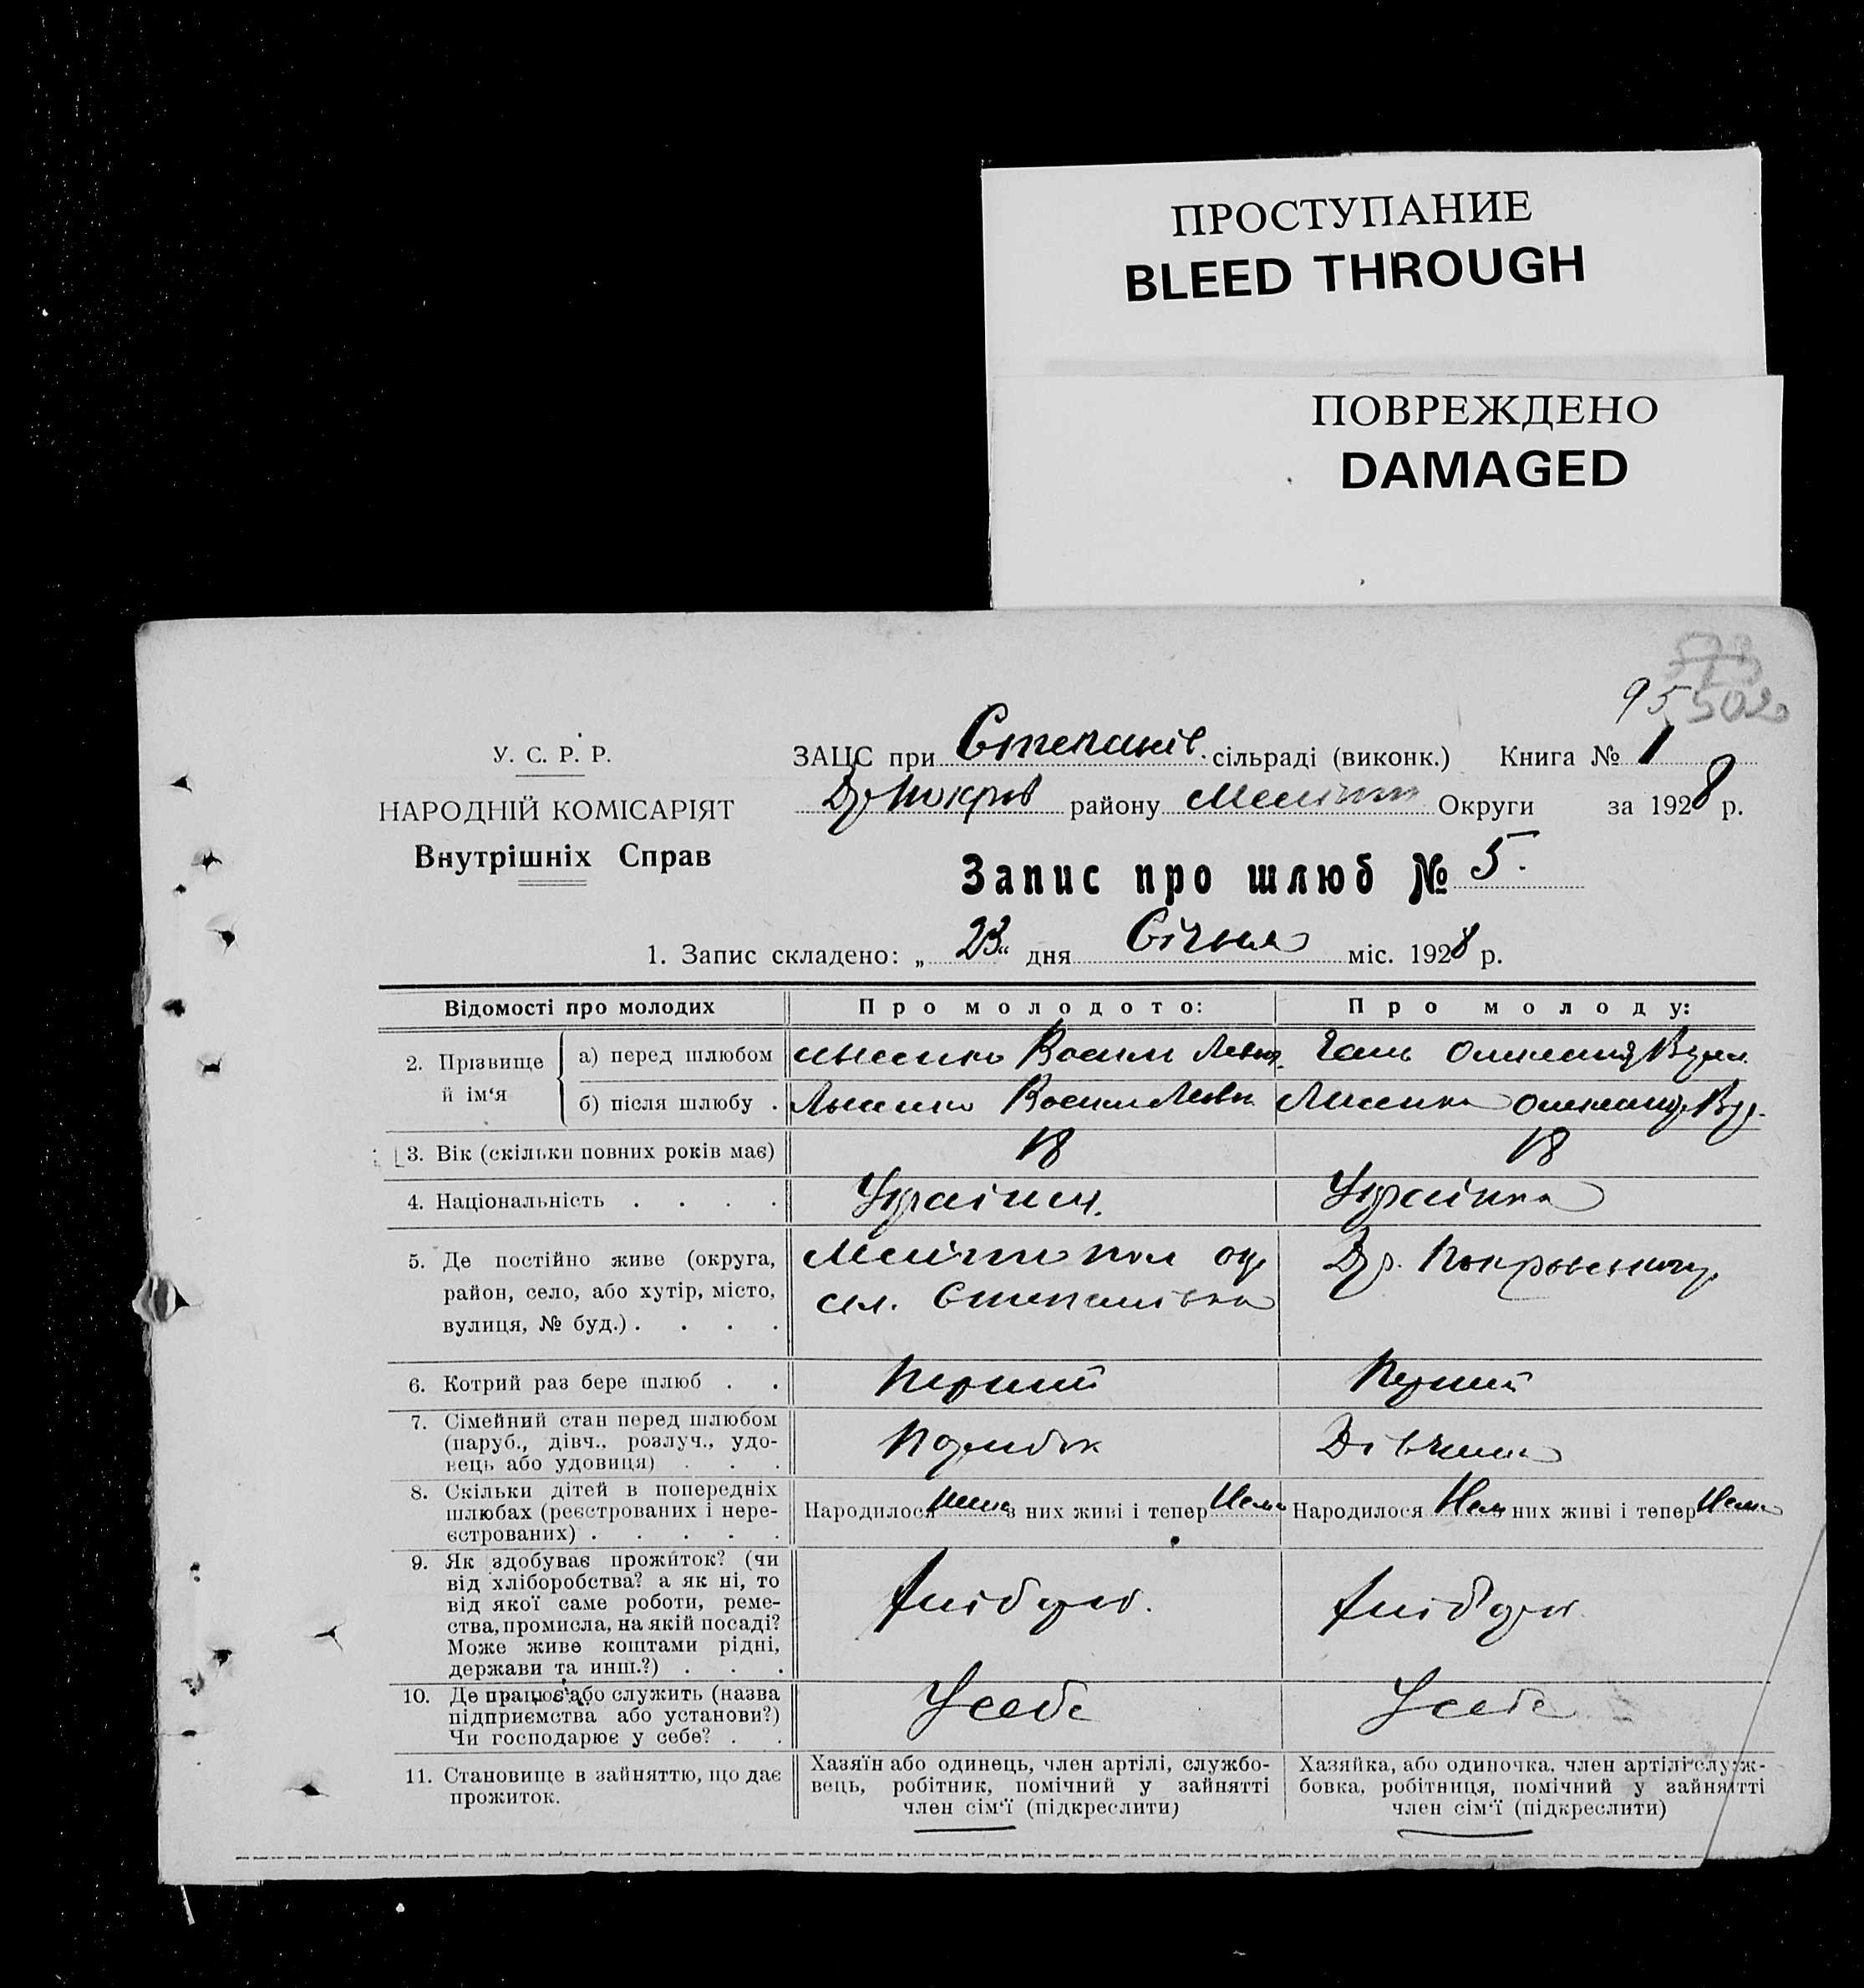 ПРОСТУПАНИЕ
BLEED THROUGH
ПОВРЕЖДЕНО
DAMAGED
95 502
У. С. Р. Р.
ЗАЦС при Степанів. сільраді (виконк.) Книга № 1
НАРОДНІЙ КОМІСАРІЯТ
району Меліт Округи за 1928 р.
Внутрішніх Справ
Запис про шлюб № 5.
1. Запис складено: „23“ дня Січня міс. 1928 р.
Відомості про молодих
Про молодого:
Про молоду:
2. Прізвище й ім‘я
а) перед шлюбом
б) після шлюбу .
3. Вік (скільки повних років має)
18
18
4. Національність . . . .
Українец.
Українка
5. Де постійно живе (округа,
район, село, або хутір, місто,
вулиця, № буд.) . . . .
Мелітопол окр
сел. Степанівка
6. Котрий раз бере шлюб . .
Перший
Перший
7. Сімейний стан перед шлюбом
(паруб., дівч., розлуч., удо-
вець або удовиця) . . .
Парубок
Дівчина
8. Скільки дітей в попередніх
шлюбах (реєстрованих і нере-
єстрованих) . . . . .
Народилося Нема з них живі і тепер Нема
Народилося Нема з них живі і тепер Нема
9. Як здобуває прожиток? (чи
від хліборобства? а як ні, то
від якої саме роботи, реме-
ства, промисла, на якій посаді?
Може живе коштами рідні,
держави та инш.?) . . .
10. Де працює або служить (назва
підприємства або установи?)
Чи господарює у себе? . .
У себе
У себе
11. Становище в зайняттю, що дає
прожиток.
Хазяїн або одинець, член артілі, службо-
вець, робітник, помічний у зайнятті
член сім‘ї (підкреслити)
Хазяйка, або одиночка, член артілі служ-
бовка, робітниця, помічний у зайнятті
член сім‘ї (підкреслити)